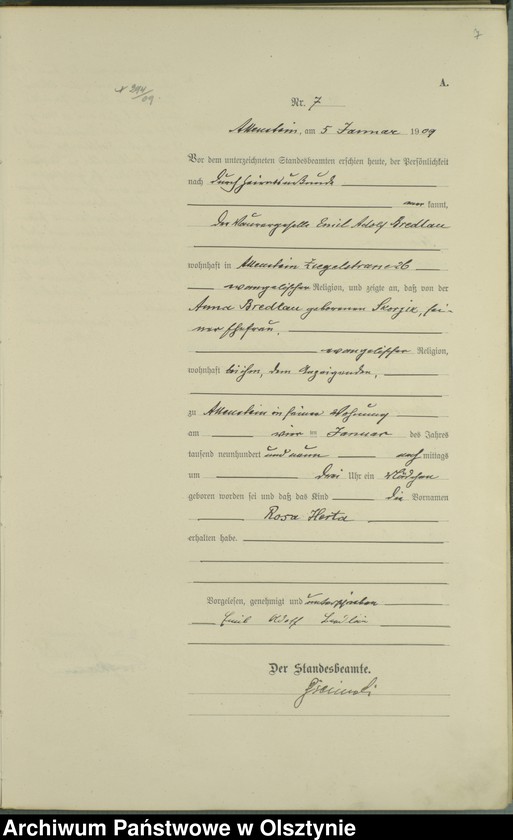 7
A.
Nr. 7
Allenstein, am 5 Januar 1909
Vor dem unterzeichneten Standesbeamten erschien heute, der Persönlichkeit
nach durch Heiratsurkunde
kannt,
der Maurergeselle Emil Adolf Bredlau
wohnhaft in Allenstein Ziegelstrasse 26
evangelischer Religion, und zeigte an, daß von der
Anna Bredlau geborenen Skorzik, sei-
ner Ehefrau,
evangelischer Religion,
wohnhaft bei ihm, dem Anzeigenden,
zu Allenstein in seiner Wohnung
am vier = Januar des Jahres
tausend neunhundert und neun nachmittags
um drei Uhr ein Mädchen
geboren worden sei und daß das Kind die Vornamen
Rosa Herta
erhalten habe.
Vorgelesen, genehmigt und unterschrieben
Emil Adolf Bredlau
Der Standesbeamte.
Archiwum Państwowe w Olsztynie